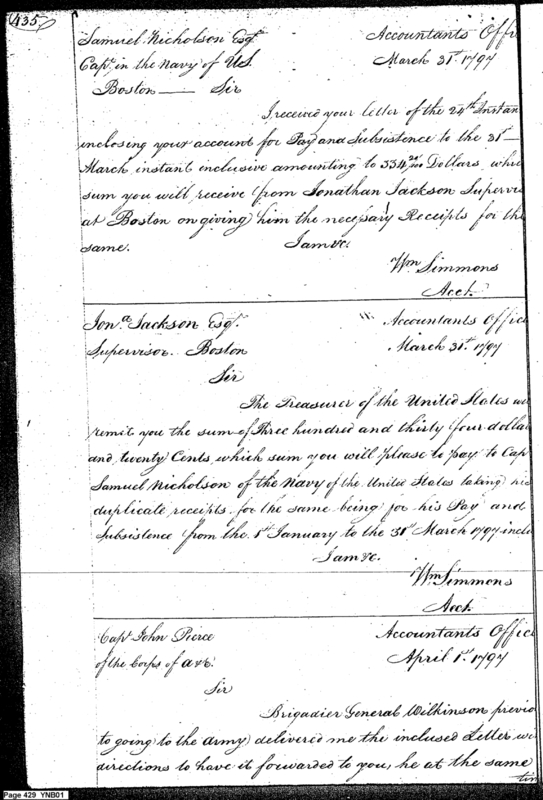 435
Samuel Nicholson Esqr. Accountants Offi
Capt. in the Navy of US March 31st. 1797
Boston — Sir
I received your letter of the 24th Instan
inclosing your account for Pay and Subsistence to the 31st
March, instant inclusive amounting to 334 20/100 Dollars, which
sum you will receive from Jonathan Jackson Supervi
at Boston on giving him the necessary Receipts for the
same. I am &c.
Wm Simmons
Acct.
Jona. Jackson Esqr. Accountants Offic
Supervisor. Boston March 31st. 1797
Sir
The Treasurer of the United States wi
remit you the sum of Three hundred and thirty four dolla
and, twenty Cents, which sum you will please to pay to Cap
Samuel Nicholson of the Navy of the United States taking hi
duplicate receipts for the same being for his Pay and
Subsistence from the 1st January to the 31st March 1797 inclu
I am &c.
Wm Simmons
Acct.
Capt John Pierce Accountants Offic
of the Corps of a&e. April 1st. 1797
Sir
Brigadier General Wilkinson previo
to going to the army) delivered me the inclused Letter wi
directions to have it forwarded to you, he at the same
tim
Page 429 YNB01